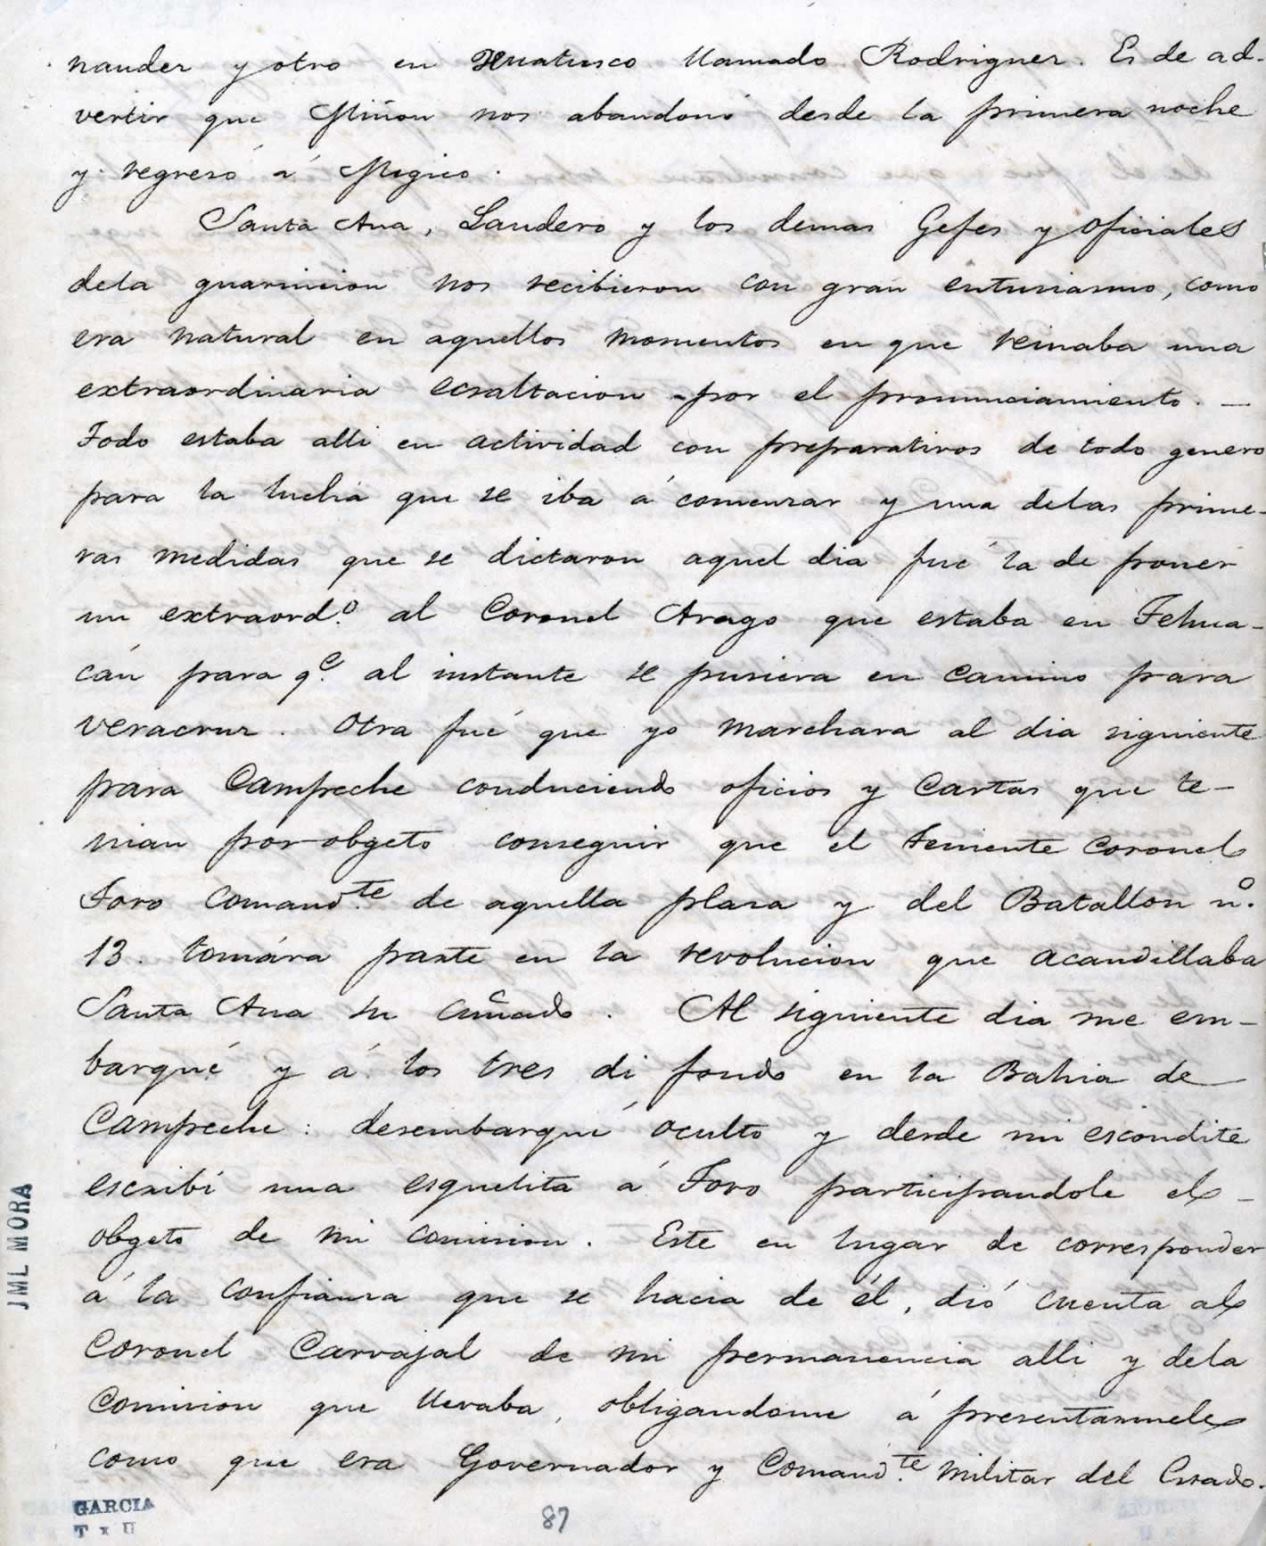 nandez y otro en Huatusco llamado Rodriguez. Es de ad-
vertir que Miñon nos abandonó desde la primera noche
y regresó á Megico.
Santa Ana, Landero y los demas Gefes y oficiales
dela guarnicion nos recibieron con gran entusiasmo, como
era natural en aquellos momentos en que reinaba una
extraordinaria ecsaltacion por el pronunciamiento. —
Todo estaba alli en actividad con preparativos de todo genero
para la lucha que se iba á comenzar y una delas prime-
ras medidas que se dictaron aquel dia fué la de poner
un extraord.o al Coronel Arago que estaba en Tehua-
cán para q.e al instante se pusiera en camino para
Veracruz. Otra fué que yo marchara al dia siguiente
para Campeche conduciendo oficios y cartas que te-
nian por obgeto conseguir que el Teniente Coronel
Toro Comand.te de aquella plaza y del Batallon n.o
13. tomára parte en la revolucion que acaudillaba
Santa Ana su cuñado. Al siguiente dia me em-
barqué y á los tres di fondo en la Bahia de
Campeche: desembarqué oculto y desde mi escondite
escribí una esquelita á Toro participandole el
obgeto de mi comision. Este en lugar de corresponder
á la confianza que se hacia de él, dió cuenta al
Coronel Carvajal de mi permanencia alli y dela
Comision que llevaba, obligandome á presentarmele
como que era Governador y Comand.te militar del Estado.
JML MORA
GARCIA
T x U
87